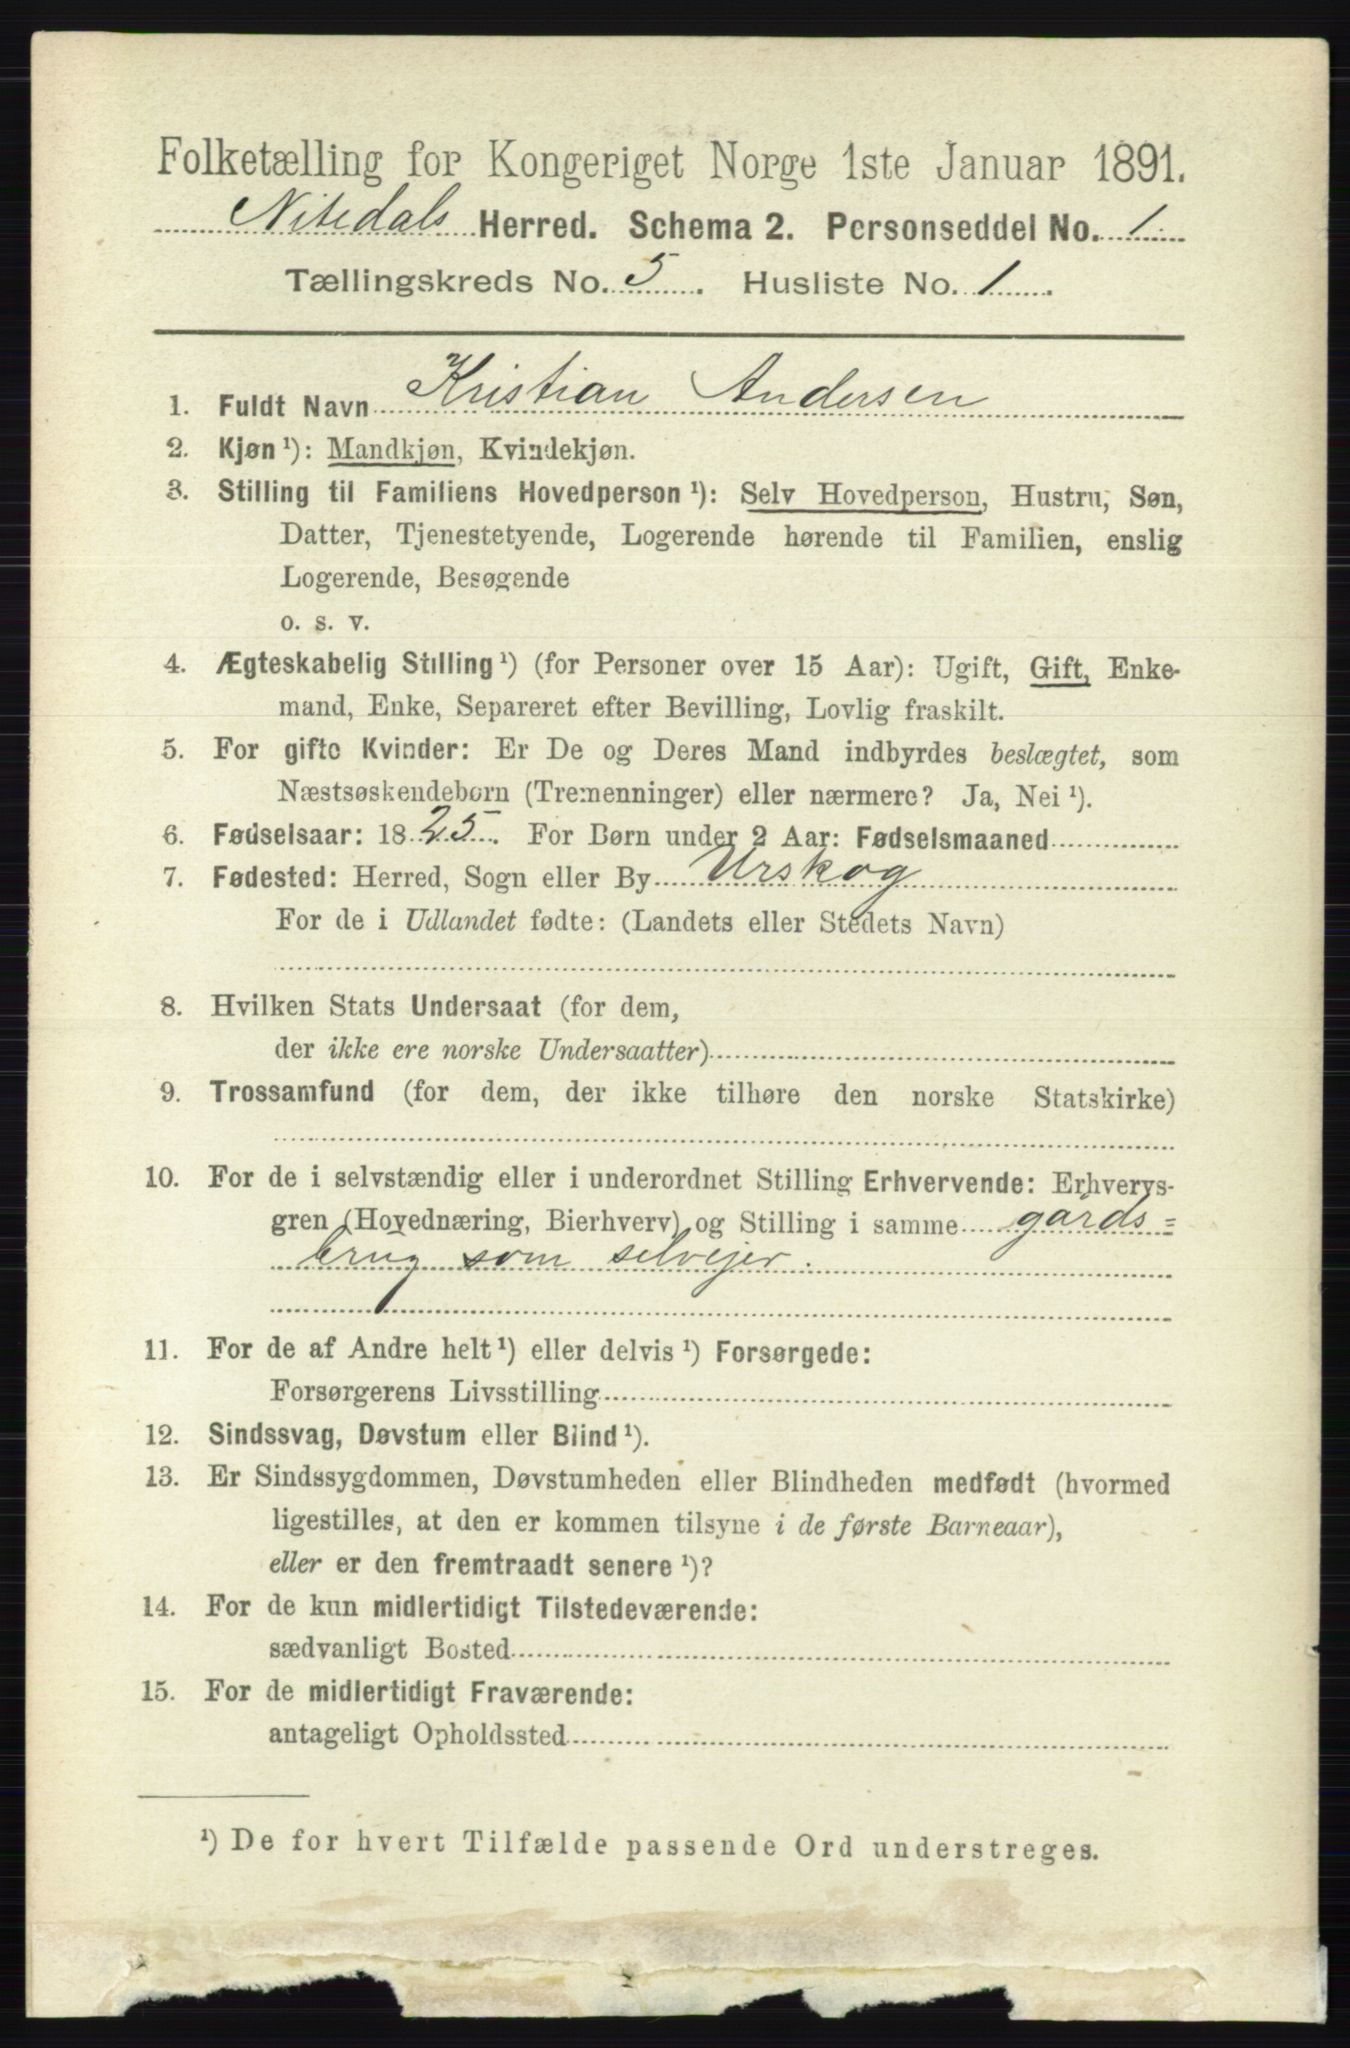 Folketælling for Kongeriget Norge 1ste Januar 1891.
Nitedals Herred. Schema 2. Personseddel No. 1.
Tællingskreds No. 5. Husliste No. 1.
1. Fuldt Navn Kristian Andersen
2. Kjøn ¹): Mandkjøn, Kvindekjøn.
3. Stilling til Familiens Hovedperson ¹): Selv Hovedperson, Hustru, Søn,
Datter, Tjenestetyende, Logerende hørende til Familien, enslig
Logerende, Besøgende
o. s. v.
4. Ægteskabelig Stilling ¹) (for Personer over 15 Aar): Ugift, Gift, Enke-
mand, Enke, Separeret efter Bevilling, Lovlig fraskilt.
5. For gifte Kvinder: Er De og Deres Mand indbyrdes beslægtet, som
Næstsøskendebørn (Tremenninger) eller nærmere? Ja, Nei ¹).
6. Fødselsaar: 1825. For Børn under 2 Aar: Fødselsmaaned
7. Fødested: Herred, Sogn eller By Urskog
For de i Udlandet fødte: (Landets eller Stedets Navn)
8. Hvilken Stats Undersaat (for dem,
der ikke ere norske Undersaatter)
9. Trossamfund (for dem, der ikke tilhøre den norske Statskirke)
10. For de i selvstændig eller i underordnet Stilling Erhvervende: Erhvervs-
gren (Hovednæring, Bierhverv) og Stilling i samme gårds=
brug som selvejer.
11. For de af Andre helt ¹) eller delvis ¹) Forsørgede:
Forsørgerens Livsstilling
12. Sindssvag, Døvstum eller Blind ¹).
13. Er Sindssygdommen, Døvstumheden eller Blindheden medfødt (hvormed
ligestilles, at den er kommen tilsyne i de første Barneaar),
eller er den fremtraadt senere ¹)?
14. For de kun midlertidigt Tilstedeværende:
sædvanligt Bosted
15. For de midlertidigt Fraværende:
antageligt Opholdssted
¹) De for hvert Tilfælde passende Ord understreges.